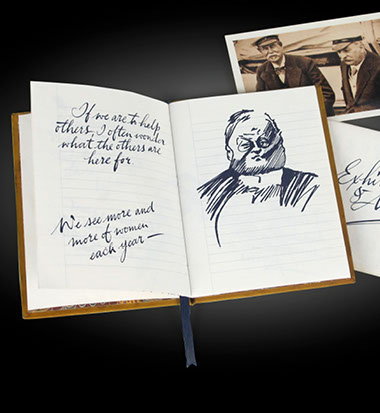 If we are to help
others, I often wonder
what the others are
here for.
We see more and
more of women
each year—
Exhi
&